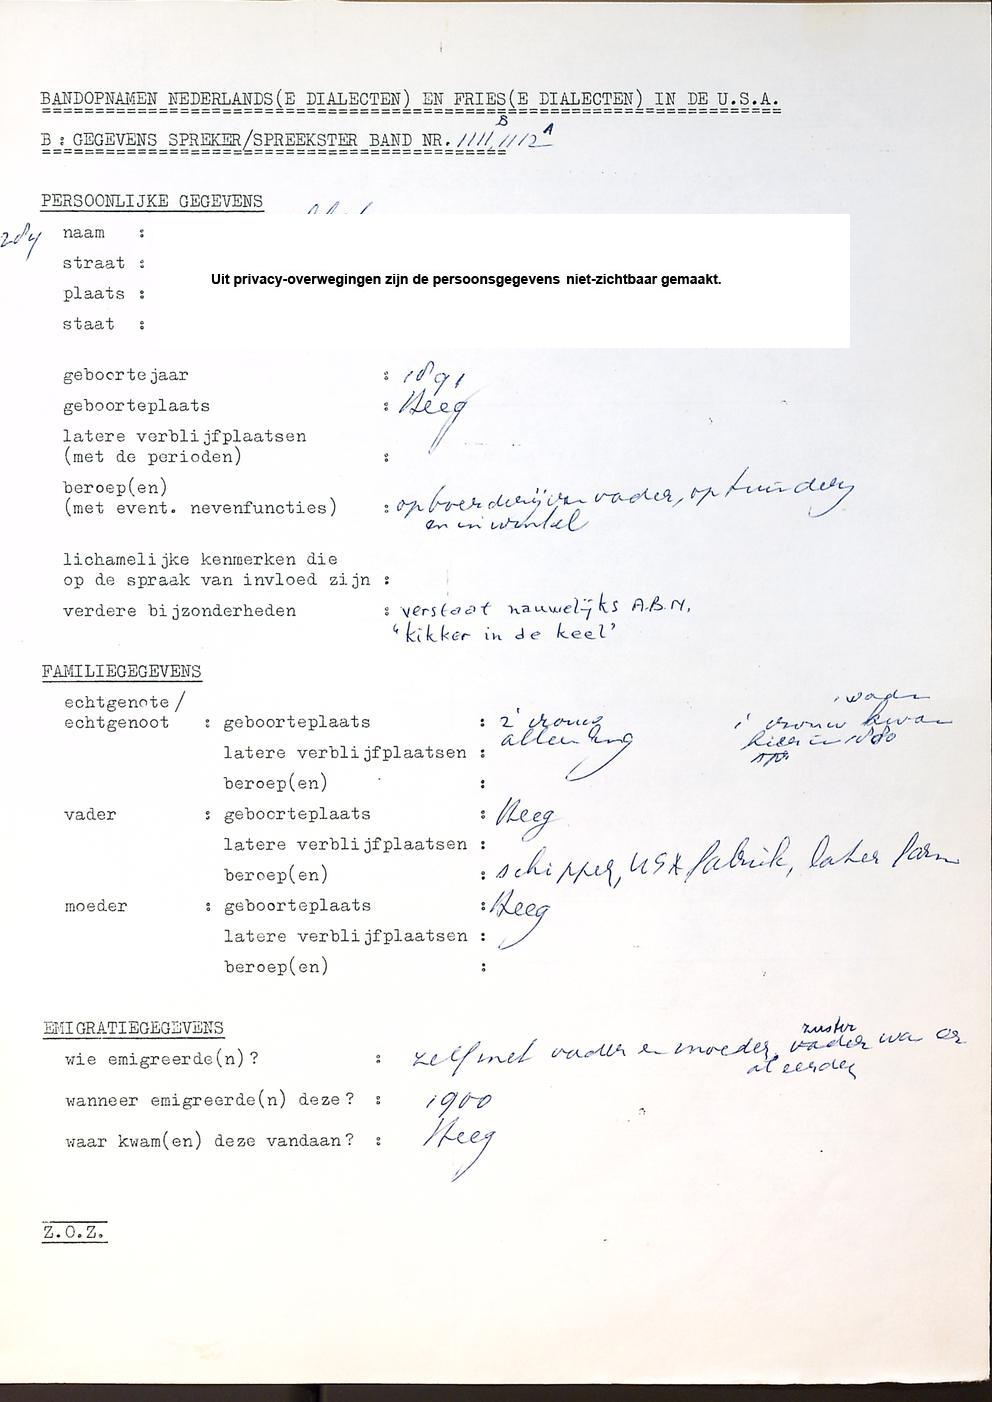 BANDOPNAMEN NEDERLANDS(E DIALECTEN) EN FRIES(E DIALECTEN) IN DE U.S.A.
B : GEGEVENS SPREKER/SPREEKSTER BAND NR. 1111 B, 1112 A
PERSOONLIJKE GEGEVENS
284 naam :
straat :
Uit privacy-overwegingen zijn de persoonsgegevens niet-zichtbaar gemaakt.
plaats :
staat :
geboortejaar : 1891
geboorteplaats : Heeg
latere verblijfplaatsen
(met de perioden) :
beroep(en)
(met event. nevenfuncties) : op boerderij van vader, op tuinderij
en in winkel
lichamelijke kenmerken die
op de spraak van invloed zijn :
verdere bijzonderheden : verstaat nauwelijks A.B.N.
"kikker in de keel"
FAMILIEGEGEVENS
echtgenote/
echtgenoot : geboorteplaats : 2e vrouw 1e vrouw kwam
alleen Eng hier in 1880
latere verblijfplaatsen :
beroep(en) :
vader : geboorteplaats : Heeg
latere verblijfplaatsen :
beroep(en) : schipper, USA fabriek, later farm
moeder : geboorteplaats : Heeg
latere verblijfplaatsen :
beroep(en) :
EMIGRATIEGEGEVENS
zuster
wie emigreerde(n)? : zelf met vader en moeder, vader was er
al eerder
wanneer emigreerde(n) deze? : 1900
waar kwam(en) deze vandaan? : Heeg
Z.O.Z.